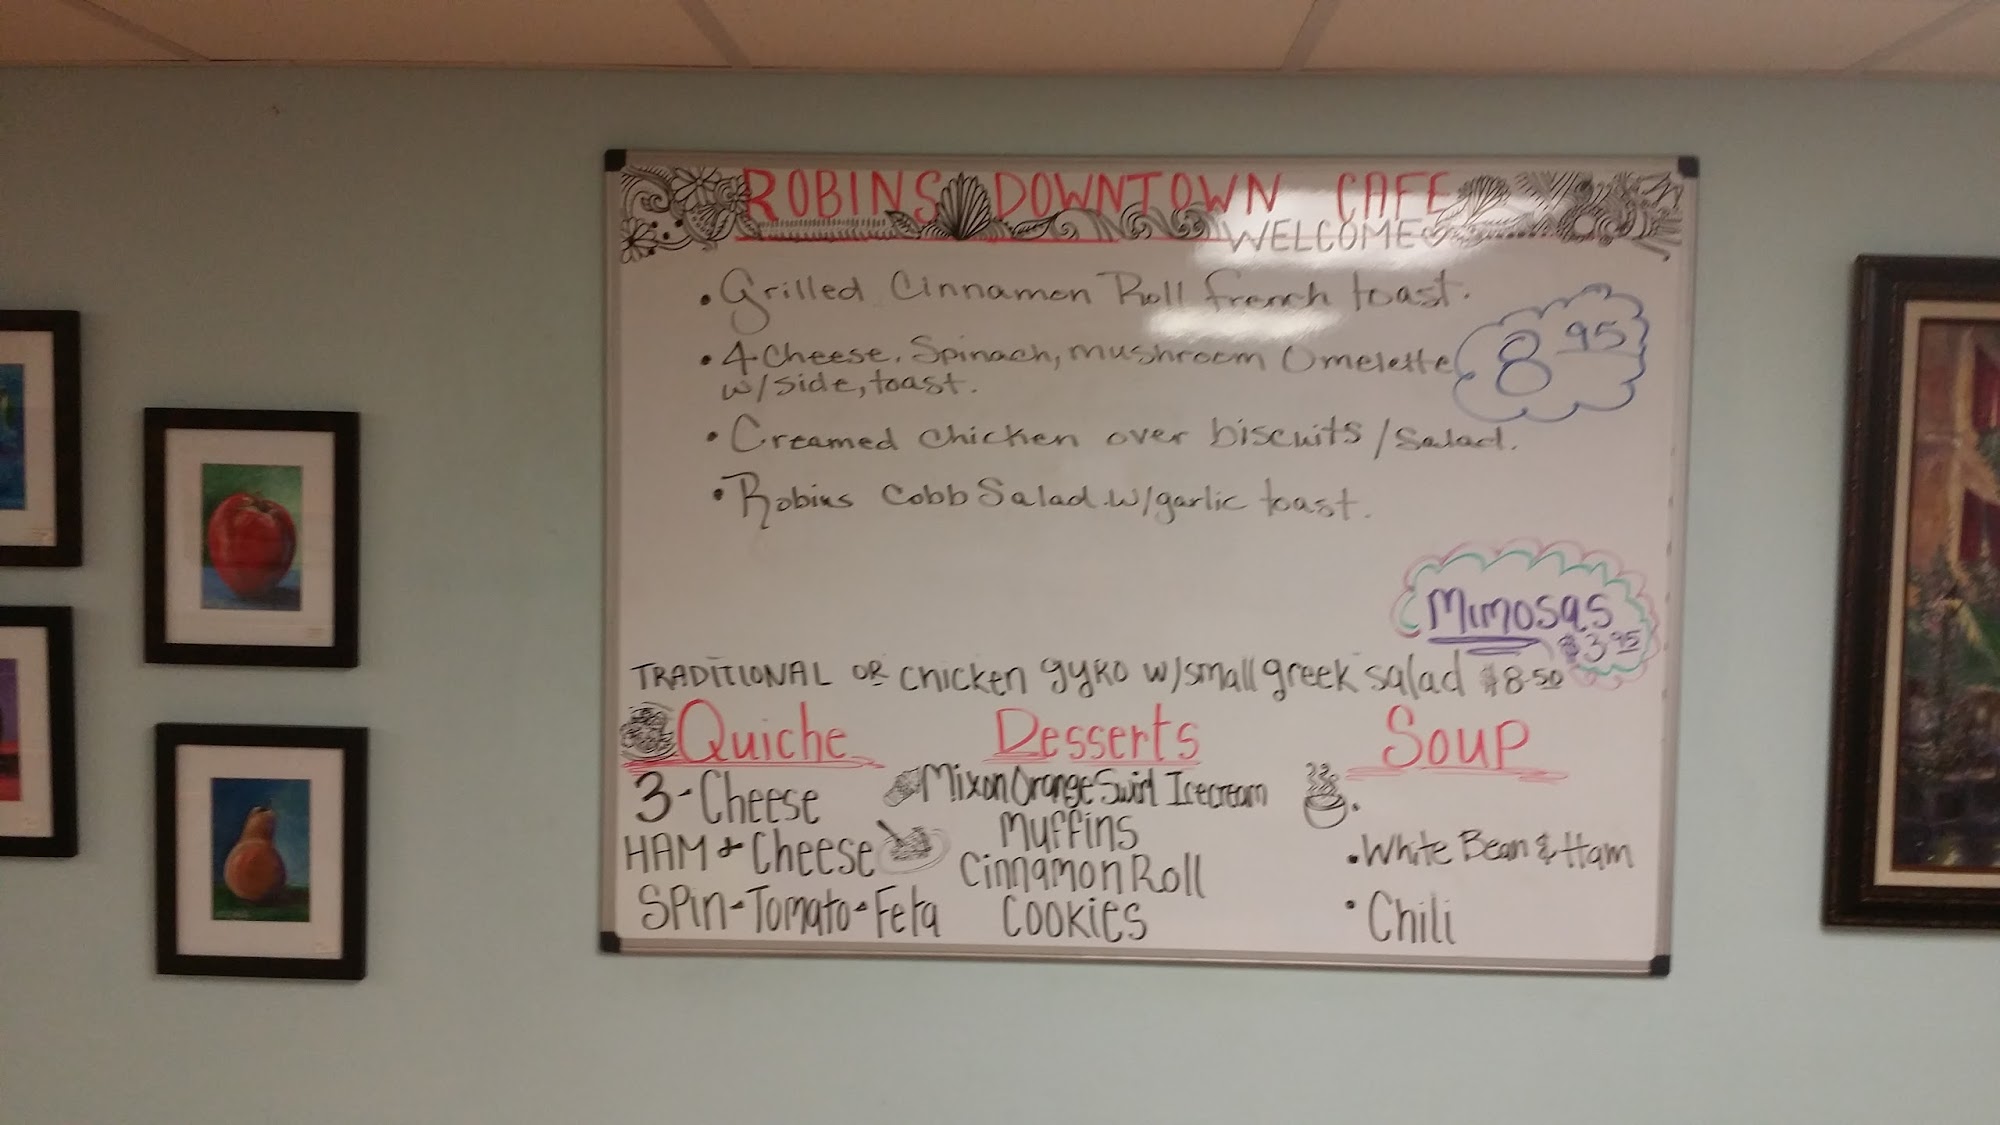 ROBINS DOWNTOWN CAFE
WELCOME
• Grilled Cinnamon Roll french toast.
• 4 Cheese, Spinach, mushroom Omelette
w/side, toast.
8 95
• Creamed chicken over biscuits / Salad.
• Robins Cobb Salad w/garlic toast.
Mimosas
$3.95
TRADITIONAL OR chicken gyro w/small greek salad $8.50
Quiche
3-Cheese
HAM & Cheese
SPin-Tomato-Feta
Desserts
Mixon Orange Swirl Icecream
Muffins
Cinnamon Roll
COOKIES
Soup
• White Bean & Ham
• Chili